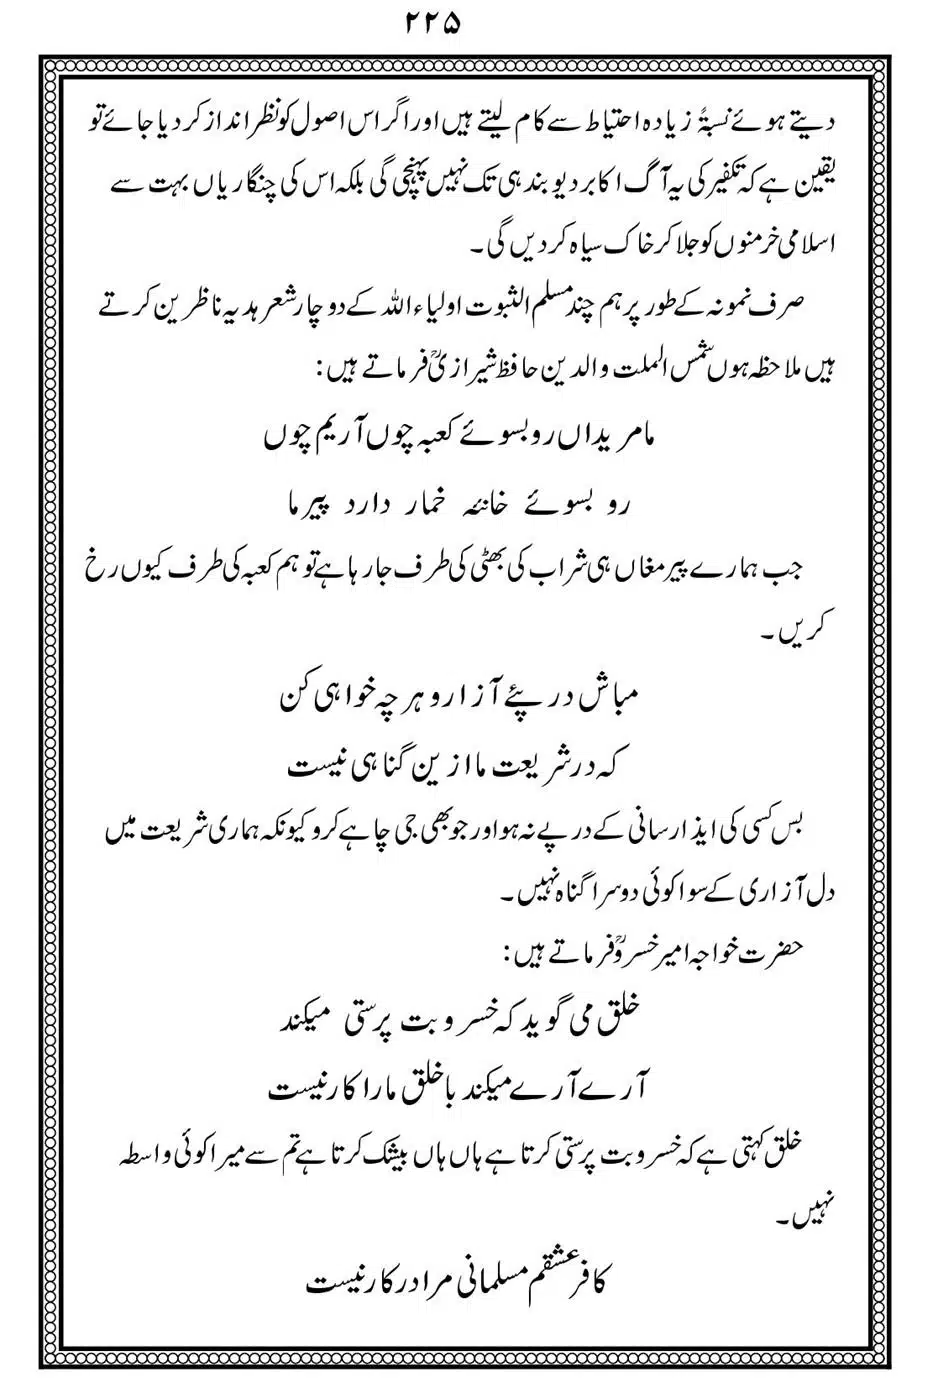 ۲۲۵
دیتے ہوئے نسبۃً زیادہ احتیاط سے کام لیتے ہیں اور اگر اس اصول کو نظر انداز کر دیا جائے تو
یقین ہے کہ تکفیر کی یہ آگ اکابر دیوبند ہی تک نہیں پہنچی گی بلکہ اس کی چنگاریاں بہت سے
اسلامی خرمنوں کو جلا کر خاک سیاہ کر دیں گی۔
صرف نمونہ کے طور پر ہم چند مسلم الثبوت اولیاء اللہ کے دو چار شعر ہدیہ ناظرین کرتے
ہیں ملاحظہ ہوں شمس الملت والدین حافظ شیرازیؒ فرماتے ہیں:
ما مریداں رو بسوئے کعبہ چوں آریم چوں
رو بسوئے خانئہ خمار دارد پیر ما
جب ہمارے پیر مغاں ہی شراب کی بھٹی کی طرف جا رہا ہے تو ہم کعبہ کی طرف کیوں رخ
کریں۔
مباش در پئے آزار و ہر چہ خواہی کن
کہ در شریعت ما ازین گناہی نیست
بس کسی کی ایذا رسانی کے درپے نہ ہو اور جو بھی جی چاہے کرو کیونکہ ہماری شریعت میں
دل آزاری کے سوا کوئی دوسرا گناہ نہیں۔
حضرت خواجہ امیر خسروؒ فرماتے ہیں:
خلق می گوید کہ خسرو بت پرستی میکند
آرے آرے میکند با خلق مارا کار نیست
خلق کہتی ہے کہ خسرو بت پرستی کرتا ہے ہاں ہاں بیشک کرتا ہے تم سے میرا کوئی واسطہ
نہیں۔
کافر عشقم مسلمانی مرا درکار نیست